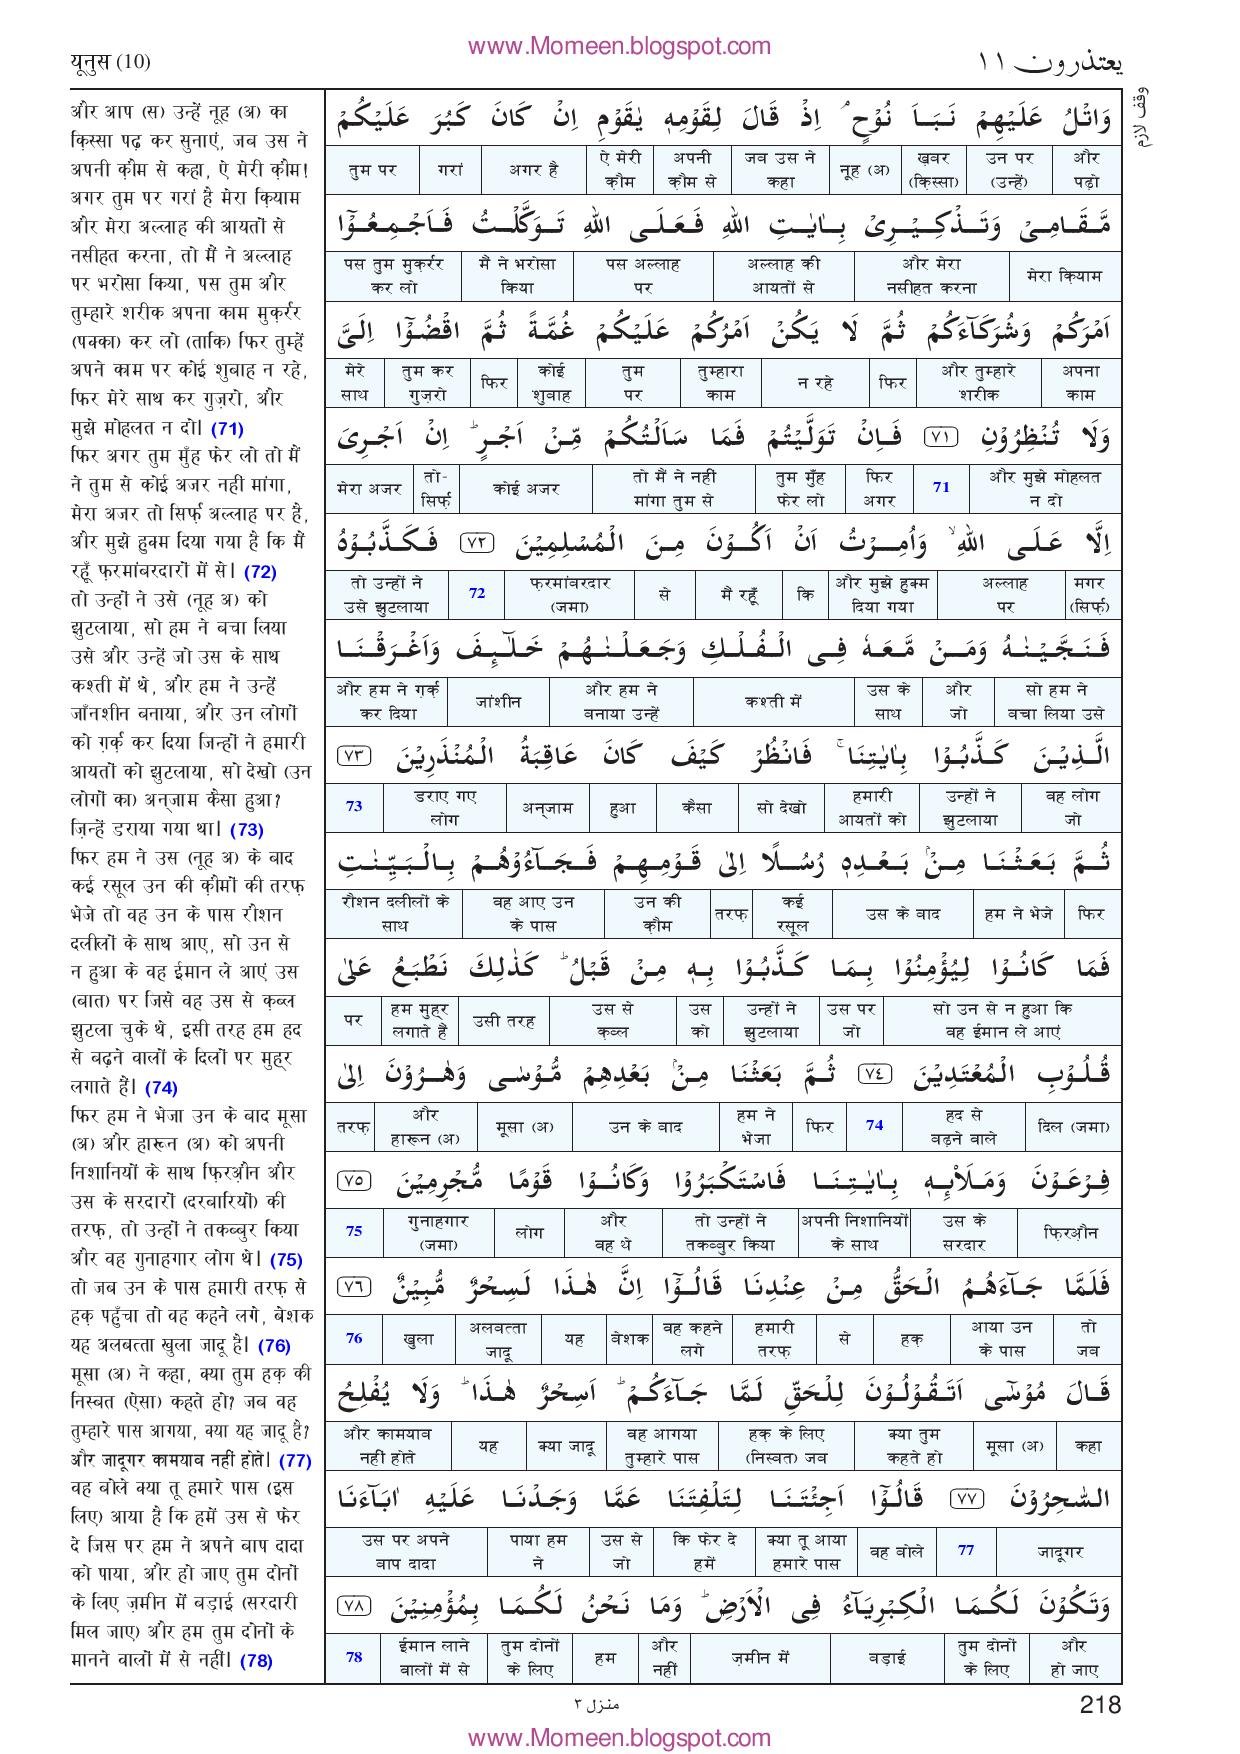 www.Momeen.blogspot.com
यूनुस (10)
يعتذرون ۱۱
وقف لازم
और आप (स) उन्हें नूह (अ) का
क़िस्सा पढ़ कर सुनाएं, जब उस ने
अपनी क़ौम से कहा, ऐ मेरी क़ौम!
अगर तुम पर गरां है मेरा क़ियाम
और मेरा अल्लाह की आयतों से
नसीहत करना, तो मैं ने अल्लाह
पर भरोसा किया, पस तुम और
तुम्हारे शरीक अपना काम मुक़र्रर
(पक्का) कर लो (ताकि) फिर तुम्हें
अपने काम पर कोई शुबाह न रहे,
फिर मेरे साथ कर गुज़रो, और
मुझे मोहलत न दो। (71)
फिर अगर तुम मुँह फेर लो तो मैं
ने तुम से कोई अजर नहीं मांगा,
मेरा अजर तो सिर्फ़ अल्लाह पर है,
और मुझे हुक्म दिया गया है कि मैं
रहूँ फ़रमांबरदारों में से। (72)
तो उन्हों ने उसे (नूह अ) को
झुटलाया, सो हम ने बचा लिया
उसे और उन्हें जो उस के साथ
कश्ती में थे, और हम ने उन्हें
जाँनशीन बनाया, और उन लोगों
को ग़र्क़ कर दिया जिन्हों ने हमारी
आयतों को झुटलाया, सो देखो (उन
लोगों का) अन्जाम कैसा हुआ?
ज़िन्हें डराया गया था। (73)
फिर हम ने उस (नूह अ) के बाद
कई रसूल उन की क़ौमों की तरफ़
भेजे तो वह उन के पास रौशन
दलीलों के साथ आए, सो उन से
न हुआ के वह ईमान ले आएं उस
(बात) पर जिसे वह उस से क़ब्ल
झुटला चुके थे, इसी तरह हम हद
से बढ़ने वालों के दिलों पर मुह्र
लगाते हैं। (74)
फिर हम ने भेजा उन के बाद मूसा
(अ) और हारून (अ) को अपनी
निशानियों के साथ फ़िरऔन और
उस के सरदारों (दरबारियों) की
तरफ़, तो उन्हों ने तकब्बुर किया
और वह गुनाहगार लोग थे। (75)
तो जब उन के पास हमारी तरफ़ से
हक़ पहुँचा तो वह कहने लगे, बेशक
यह अलबत्ता खुला जादू है। (76)
मूसा (अ) ने कहा, क्या तुम हक़ की
निस्बत (ऐसा) कहते हो? जब वह
तुम्हारे पास आगया, क्या यह जादू है?
और जादूगर कामयाब नहीं होते। (77)
वह बोले क्या तू हमारे पास (इस
लिए) आया है कि हमें उस से फेर
दे जिस पर हम ने अपने बाप दादा
को पाया, और हो जाए तुम दोनों
के लिए ज़मीन में बड़ाई (सरदारी
मिल जाए) और हम तुम दोनों के
मानने वालों में से नहीं। (78)
وَاتْلُ عَلَيْهِمْ نَبَاَ نُوْحٍ ۘ اِذْ قَالَ لِقَوْمِهٖ يٰقَوْمِ اِنْ كَانَ كَبُرَ عَلَيْكُمْ
और पढ़ो उन पर (उन्हें) ख़बर (क़िस्सा) नूह (अ) जब उस ने कहा अपनी क़ौम से ऐ मेरी क़ौम अगर है गरां तुम पर
مَّقَامِىْ وَتَذْكِيْرِىْ بِاٰيٰتِ اللّٰهِ فَعَلَى اللّٰهِ تَوَكَّلْتُ فَاَجْمِعُوْٓا
मेरा क़ियाम और मेरा नसीहत करना अल्लाह की आयतों से पस अल्लाह पर मैं ने भरोसा किया पस तुम मुक़र्रर कर लो
اَمْرَكُمْ وَشُرَكَآءَكُمْ ثُمَّ لَا يَكُنْ اَمْرُكُمْ عَلَيْكُمْ غُمَّةً ثُمَّ اقْضُوْٓا اِلَىَّ
अपना काम और तुम्हारे शरीक फिर न रहे तुम्हारा काम तुम पर कोई शुबाह फिर तुम कर गुज़रो मेरे साथ
وَلَا تُنْظِرُوْنِ ﴿٧١﴾ فَاِنْ تَوَلَّيْتُمْ فَمَا سَاَلْتُكُمْ مِّنْ اَجْرٍ ؕ اِنْ اَجْرِىَ
और मुझे मोहलत न दो 71 फिर अगर तुम मुँह फेर लो तो मैं ने नहीं मांगा तुम से कोई अजर तो- सिर्फ़ मेरा अजर
اِلَّا عَلَى اللّٰهِ ۙ وَاُمِرْتُ اَنْ اَكُوْنَ مِنَ الْمُسْلِمِيْنَ ﴿٧٢﴾ فَكَذَّبُوْهُ
मगर (सिर्फ़) अल्लाह पर और मुझे हुक्म दिया गया कि मैं रहूँ से फ़रमांबरदार (जमा) 72 तो उन्हों ने उसे झुटलाया
فَنَجَّيْنٰهُ وَمَنْ مَّعَهٗ فِى الْفُلْكِ وَجَعَلْنٰهُمْ خَلٰٓئِفَ وَاَغْرَقْنَا
सो हम ने बचा लिया उसे और जो उस के साथ कश्ती में और हम ने बनाया उन्हें जांशीन और हम ने ग़र्क़ कर दिया
الَّذِيْنَ كَذَّبُوْا بِاٰيٰتِنَا ۚ فَانْظُرْ كَيْفَ كَانَ عَاقِبَةُ الْمُنْذَرِيْنَ ﴿٧٣﴾
वह लोग जो उन्हों ने झुटलाया हमारी आयतों को सो देखो कैसा हुआ अन्जाम डराए गए लोग 73
ثُمَّ بَعَثْنَا مِنْۢ بَعْدِهٖ رُسُلًا اِلٰى قَوْمِهِمْ فَجَآءُوْهُمْ بِالْبَيِّنٰتِ
फिर हम ने भेजे उस के बाद कई रसूल तरफ़ उन की क़ौम वह आए उन के पास रौशन दलीलों के साथ
فَمَا كَانُوْا لِيُؤْمِنُوْا بِمَا كَذَّبُوْا بِهٖ مِنْ قَبْلُ ؕ كَذٰلِكَ نَطْبَعُ عَلٰى
सो उन से न हुआ कि वह ईमान ले आएं उस पर जो उन्हों ने झुटलाया उस को उस से क़ब्ल उसी तरह हम मुह्र लगाते हैं पर
قُلُوْبِ الْمُعْتَدِيْنَ ﴿٧٤﴾ ثُمَّ بَعَثْنَا مِنْۢ بَعْدِهِمْ مُّوْسٰى وَهٰرُوْنَ اِلٰى
दिल (जमा) हद से बढ़ने वाले 74 फिर हम ने भेजा उन के बाद मूसा (अ) और हारून (अ) तरफ़
فِرْعَوْنَ وَمَلَا۟ئِهٖ بِاٰيٰتِنَا فَاسْتَكْبَرُوْا وَكَانُوْا قَوْمًا مُّجْرِمِيْنَ ﴿٧٥﴾
फ़िरऔन उस के सरदार अपनी निशानियों के साथ तो उन्हों ने तकब्बुर किया और वह थे लोग गुनाहगार (जमा) 75
فَلَمَّا جَآءَهُمُ الْحَقُّ مِنْ عِنْدِنَا قَالُوْٓا اِنَّ هٰذَا لَسِحْرٌ مُّبِيْنٌ ﴿٧٦﴾
तो जब आया उन के पास हक़ से हमारी तरफ़ वह कहने लगे बेशक यह अलबत्ता जादू खुला 76
قَالَ مُوْسٰٓى اَتَقُوْلُوْنَ لِلْحَقِّ لَمَّا جَآءَكُمْ ؕ اَسِحْرٌ هٰذَا ؕ وَلَا يُفْلِحُ
कहा मूसा (अ) क्या तुम कहते हो हक़ के लिए (निस्बत) जब वह आगया तुम्हारे पास क्या जादू यह और कामयाब नहीं होते
السّٰحِرُوْنَ ﴿٧٧﴾ قَالُوْٓا اَجِئْتَنَا لِتَلْفِتَنَا عَمَّا وَجَدْنَا عَلَيْهِ اٰبَآءَنَا
जादूगर 77 वह बोले क्या तू आया हमारे पास कि फेर दे हमें उस से जो पाया हम ने उस पर अपने बाप दादा
وَتَكُوْنَ لَكُمَا الْكِبْرِيَآءُ فِى الْاَرْضِ ؕ وَمَا نَحْنُ لَكُمَا بِمُؤْمِنِيْنَ ﴿٧٨﴾
और हो जाए तुम दोनों के लिए बड़ाई ज़मीन में और नहीं हम तुम दोनों के लिए ईमान लाने वालों में से 78
منزل ۳
218
www.Momeen.blogspot.com